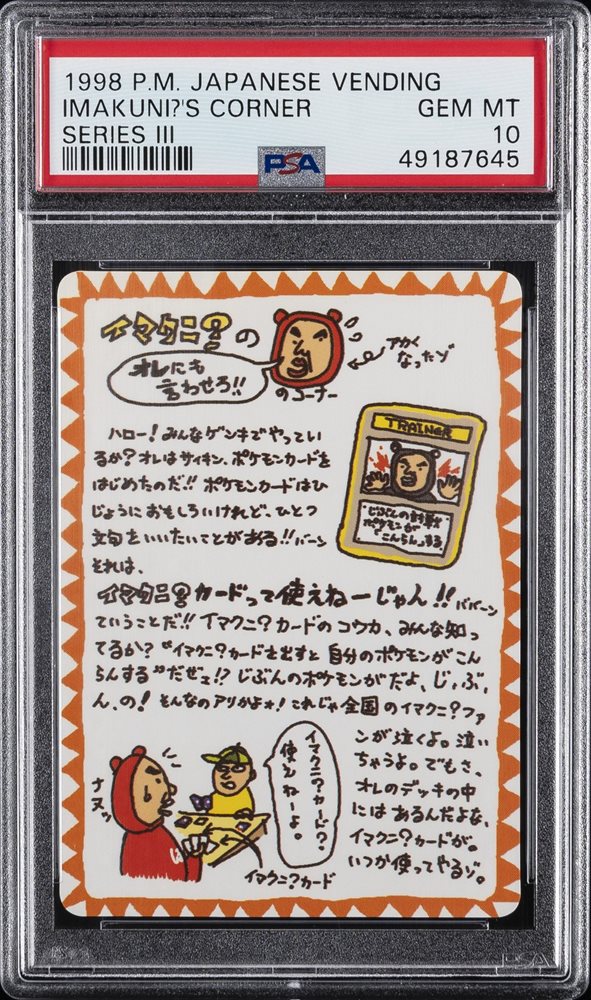 1998 P.M. JAPANESE VENDING
IMAKUNI?'S CORNER GEM MT
SERIES III 10
PSA 49187645
イマクニ?の
オレにも
言わせろ!!
のコーナー
アカく
なったゾ
ハロー!みんなゲンキでやってい
るか?オレはサイキン、ポケモンカードを
はじめたのだ!!ポケモンカードはひ
じょうにおもしろいけれど、ひとつ
文句をいいたいことがある!!バーン
それは、
TRAINER
じぶんの対戦
ポケモンが
「こんらん」する
イマクニ?カードって使えねーじゃん!!ババーン
ていうことだ!!イマクニ?カードのコウカ、みんな知っ
てるか?"イマクニ?カードを出すと自分のポケモンがこん
らんする"だぜェ!?じぶんのポケモンがだよ、じ、ぶ、
ん、の!そんなのアリかよォ!これじゃ全国のイマクニ?ファ
ンが泣くよ。泣い
ちゃうよ。でもさ、
オレのデッキの中
にはあるんだよな、
イマクニ?カードが。
いつか使ってやるゾ。
イマクニ?カード?
使えねーよ。
ナヌッ
イマクニ?カード
PSA